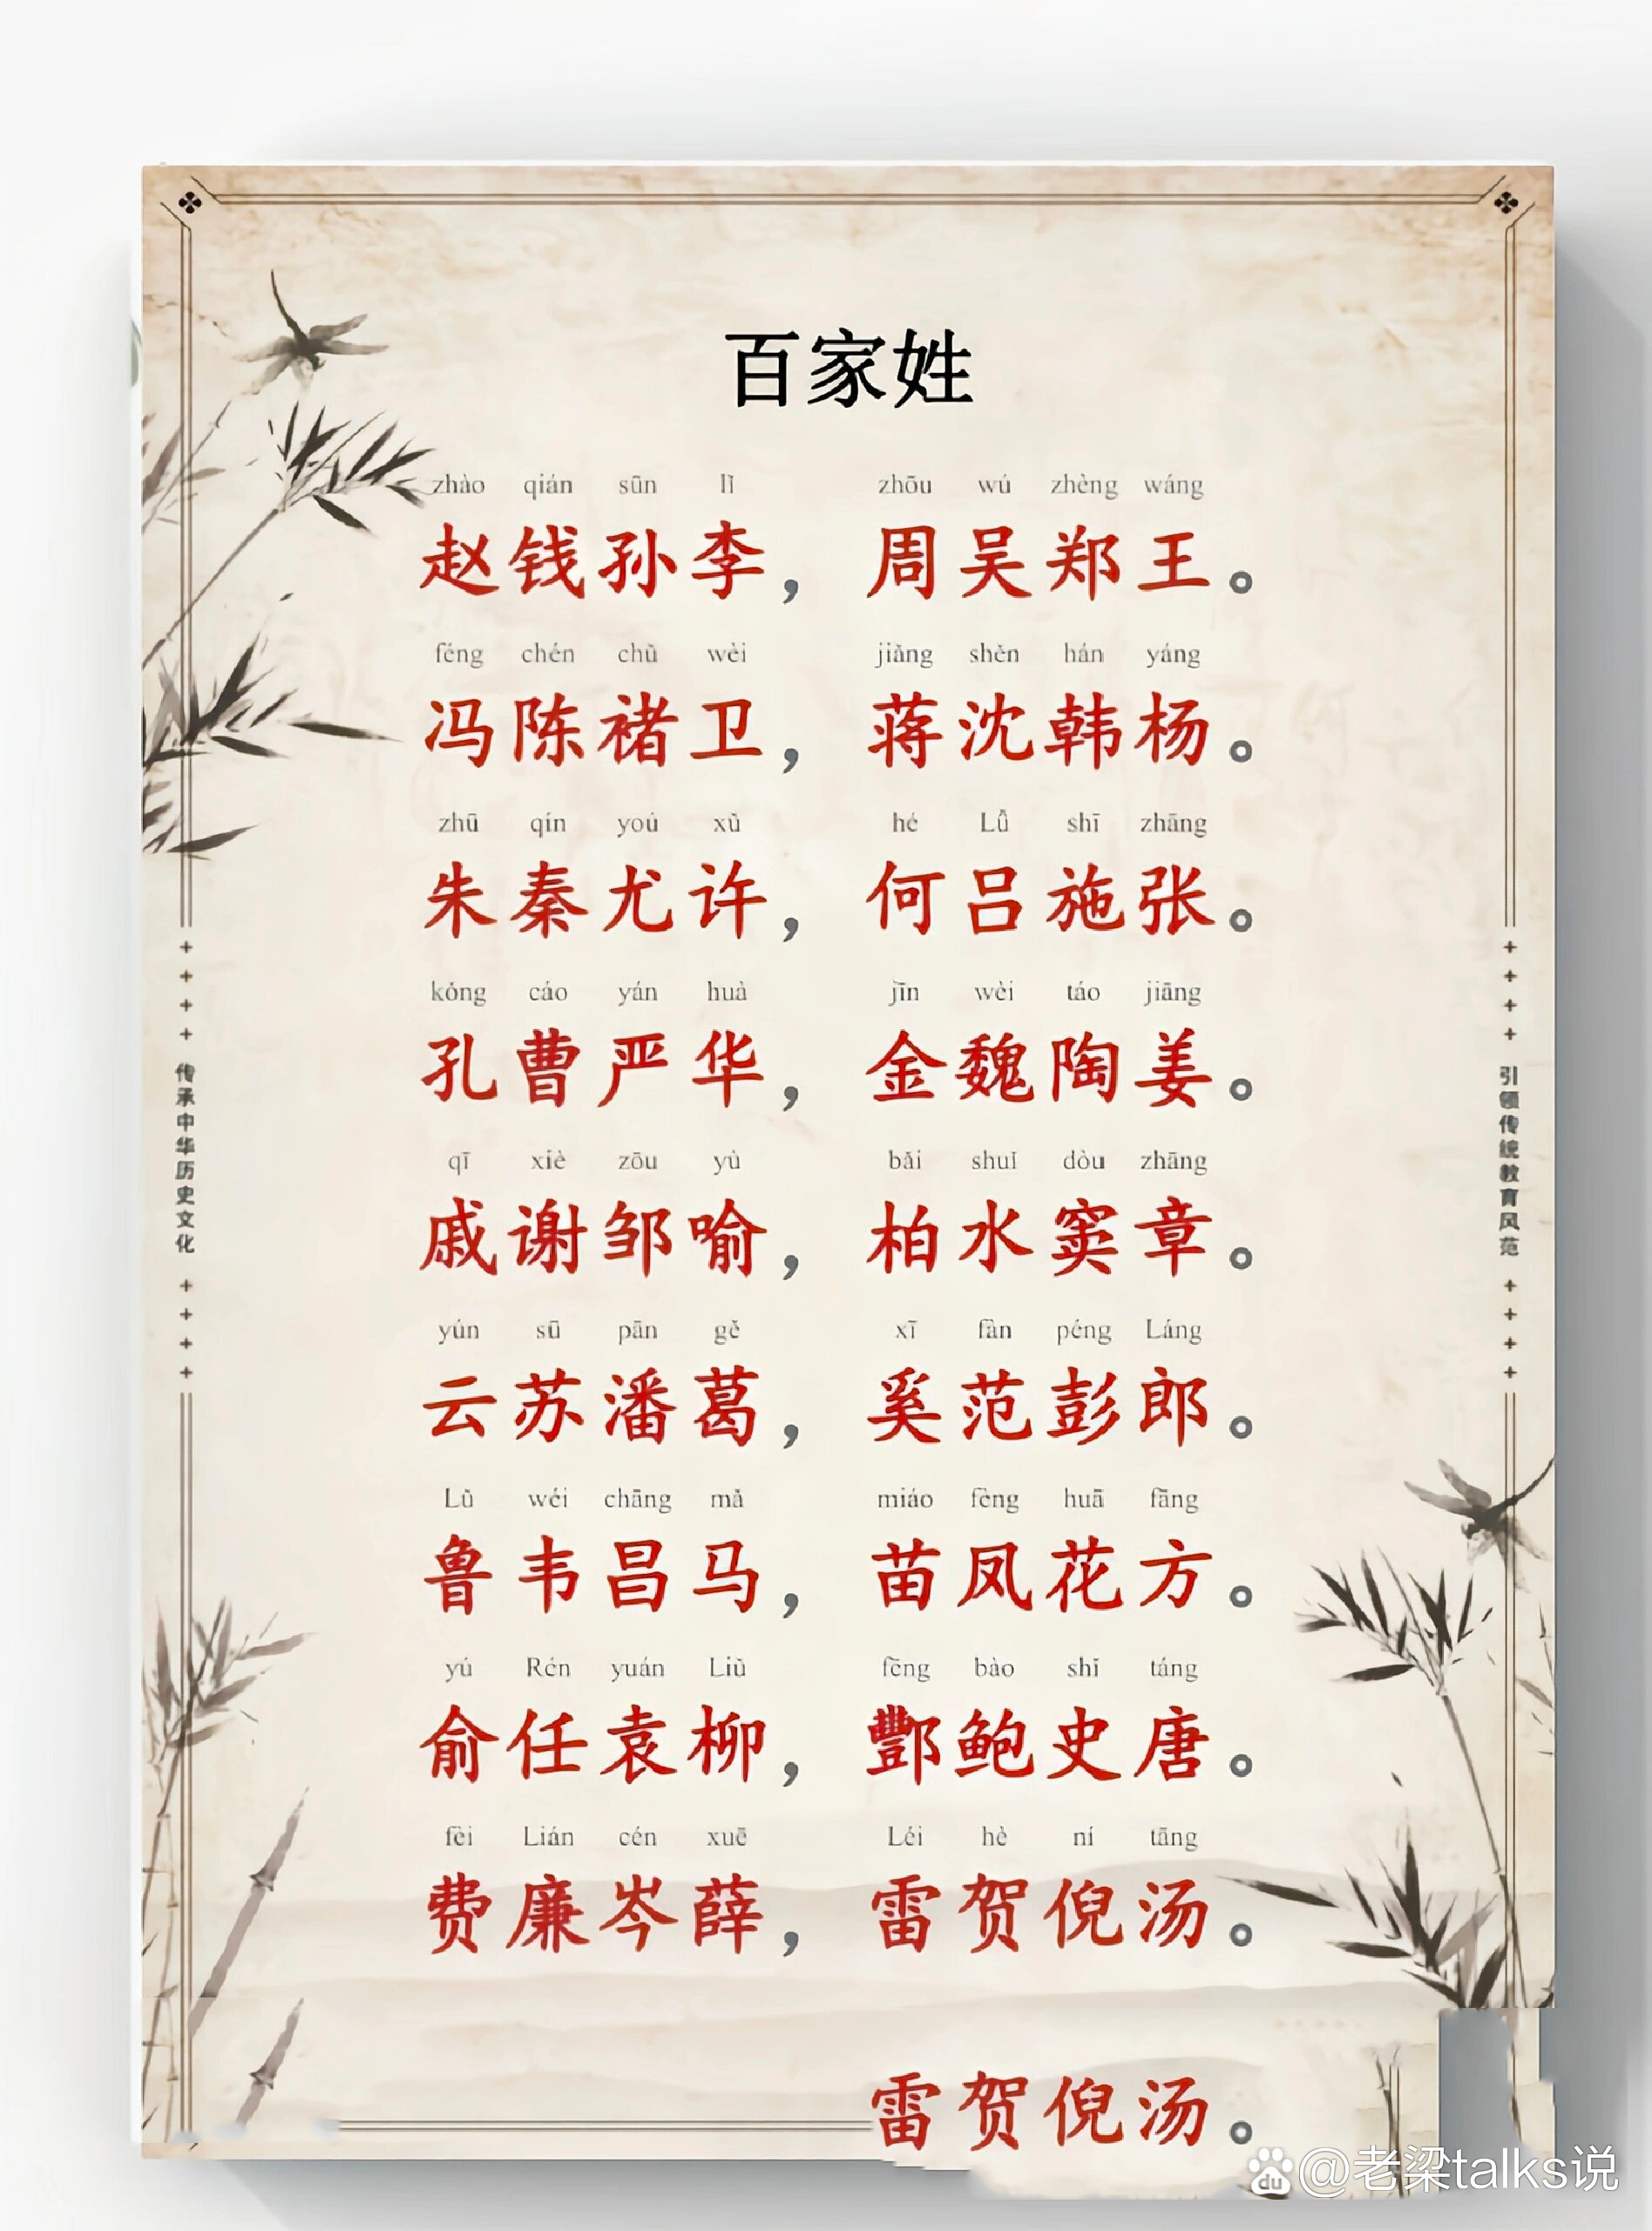 百家姓
zhào qián sūn lǐ zhōu wú zhèng wáng
赵钱孙李，周吴郑王。
féng chén chǔ wèi jiǎng shěn hán yáng
冯陈褚卫，蒋沈韩杨。
zhū qín yoú xǔ hé Lǚ shī zhāng
朱秦尤许，何吕施张。
kǒng cáo yán huà jīn wèi táo jiāng
孔曹严华，金魏陶姜。
qī xiè zōu yù bǎi shuǐ dòu zhāng
戚谢邹喻，柏水窦章。
yún sū pān gě xī fàn péng Láng
云苏潘葛，奚范彭郎。
Lǔ wéi chāng mǎ miáo fèng huā fāng
鲁韦昌马，苗凤花方。
yú Rén yuán Liǔ fēng bào shǐ táng
俞任袁柳，酆鲍史唐。
fèi Lián cén xuē Léi hè ní tāng
费廉岑薛，雷贺倪汤。
雷贺倪汤。
传承中华历史文化
引领传统教育风范
du @老梁talks说